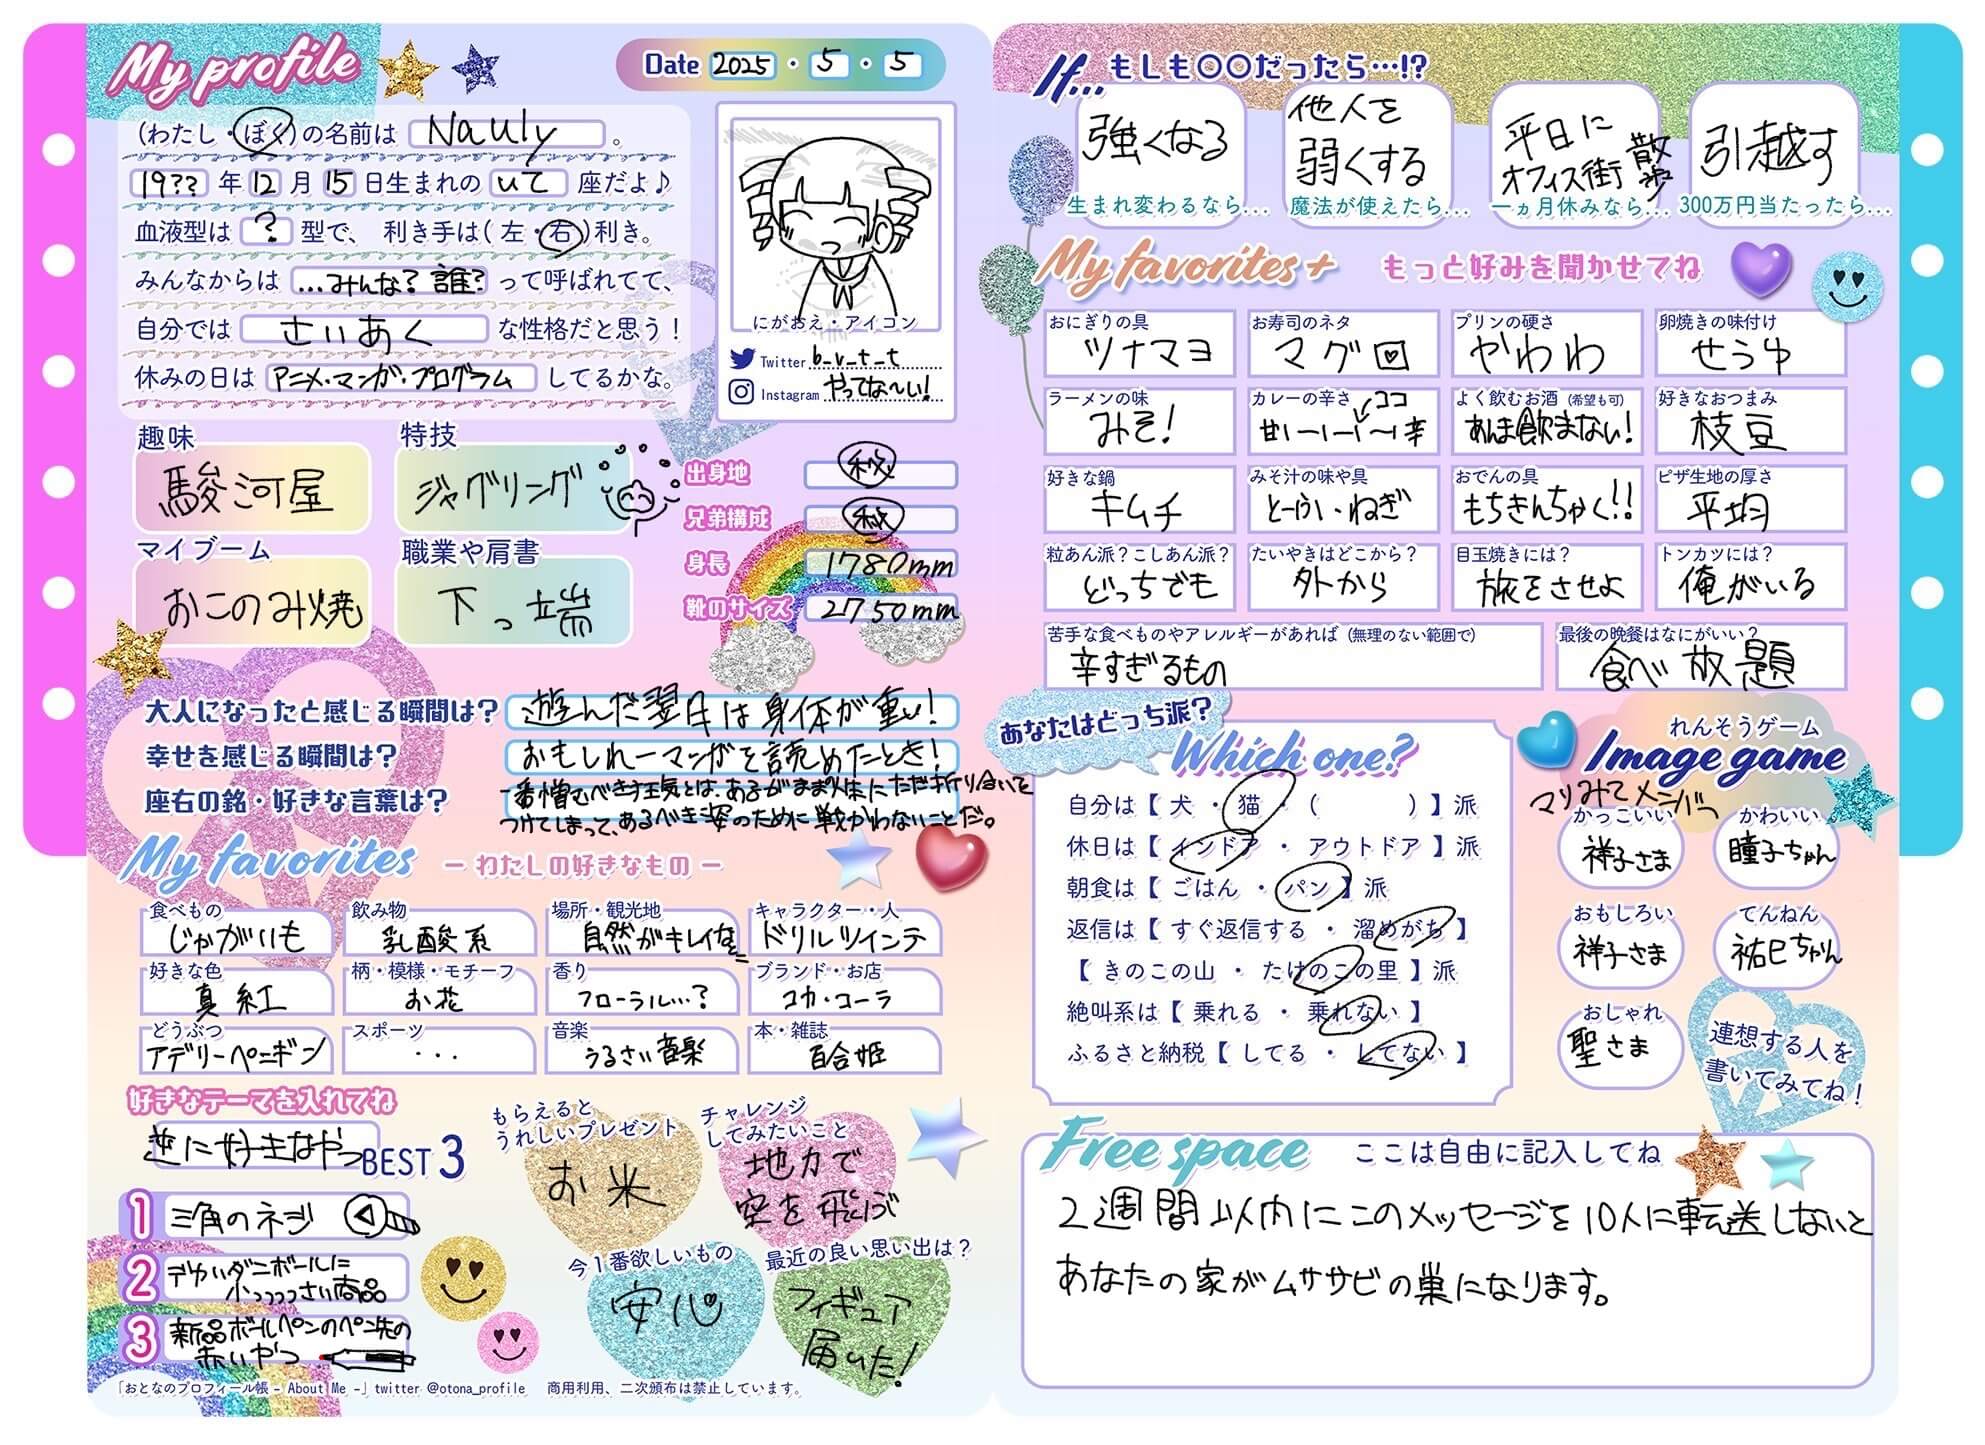 My profile
Date 2025・5・5
(わたし・ぼく)の名前は Nauly 。
19?? 年 12 月 15 日生まれの いて 座だよ♪
血液型は ? 型で、 利き手は( 左・右 )利き。
みんなからは …みんな? 誰? って呼ばれてて、
自分では さいあく な性格だと思う!
休みの日は アニメ・マンガ・プログラム してるかな。
にがおえ・アイコン
Twitter b_v_t_t
Instagram やってな〜い!
趣味
駿河屋
特技
ジャグリング
マイブーム
おこのみ焼
職業や肩書
下っ端
出身地 秘
兄弟構成 秘
身長 1780mm
靴のサイズ 2750mm
大人になったと感じる瞬間は? 遊んだ翌日は身体が重い!
幸せを感じる瞬間は? おもしれーマンガを読めたとき!
座右の銘・好きな言葉は? 一番憎むべき狂気とは、あるがままの人生にただ折り合いを
つけてしまって、あるべき姿のために戦かわないことだ。
My favorites ー わたしの好きなもの ー
食べもの
じゃがいも
飲み物
乳酸系
場所・観光地
自然がキレイなとこ
キャラクター・人
ドリルツインテ
好きな色
真紅
柄・模様・モチーフ
お花
香り
フローラル…?
ブランド・お店
コカ・コーラ
どうぶつ
アデリーペンギン
スポーツ
・・・
音楽
うるさい音楽
本・雑誌
百合姫
好きなテーマを入れてね
逆に好きなやつ BEST 3
1 三角のネジ
2 デカいダンボールに
小っっっっさい商品
3 新品ボールペンのペン先の
赤いやつ
もらえると
うれしいプレゼント
お米
チャレンジ
してみたいこと
地力で
空を飛ぶ
今1番欲しいもの
安心
最近の良い思い出は?
フィギュア
届いた!
「おとなのプロフィール帳 - About Me -」twitter @otona_profile 商用利用、二次頒布は禁止しています。
If... もしも〇〇だったら…!?
強くなる
生まれ変わるなら...
他人を
弱くする
魔法が使えたら...
平日に
オフィス街 散歩
一ヵ月休みなら...
引越す
300万円当たったら...
My favorites+ もっと好みを聞かせてね
おにぎりの具
ツナマヨ
お寿司のネタ
マグロ
プリンの硬さ
やわわ
卵焼きの味付け
せうゆ
ラーメンの味
みそ!
カレーの辛さ
ココ
甘い〜辛
よく飲むお酒 (希望も可)
あんま飲まない!
好きなおつまみ
枝豆
好きな鍋
キムチ
みそ汁の味や具
とーふ・ねぎ
おでんの具
もちきんちゃく!!
ピザ生地の厚さ
平均
粒あん派?こしあん派?
どっちでも
たいやきはどこから?
外から
目玉焼きには?
旅をさせよ
トンカツには?
俺がいる
苦手な食べものやアレルギーがあれば (無理のない範囲で)
辛すぎるもの
最後の晩餐はなにがいい?
食べ放題
あなたはどっち派?
Which one?
自分は【 犬 ・ 猫 ・ ( ) 】派
休日は【 インドア ・ アウトドア 】派
朝食は【 ごはん ・ パン 】派
返信は【 すぐ返信する ・ 溜めがち 】
【 きのこの山 ・ たけのこの里 】派
絶叫系は【 乗れる ・ 乗れない 】
ふるさと納税【 してる ・ してない 】
れんそうゲーム
Image game
マリみてメンバっ
かっこいい
祥子さま
かわいい
瞳子ちゃん
おもしろい
祥子さま
てんねん
祐巳ちゃん
おしゃれ
聖さま
連想する人を
書いてみてね!
Free space ここは自由に記入してね
2週間以内にこのメッセージを10人に転送しないと
あなたの家がムササビの巣になります。